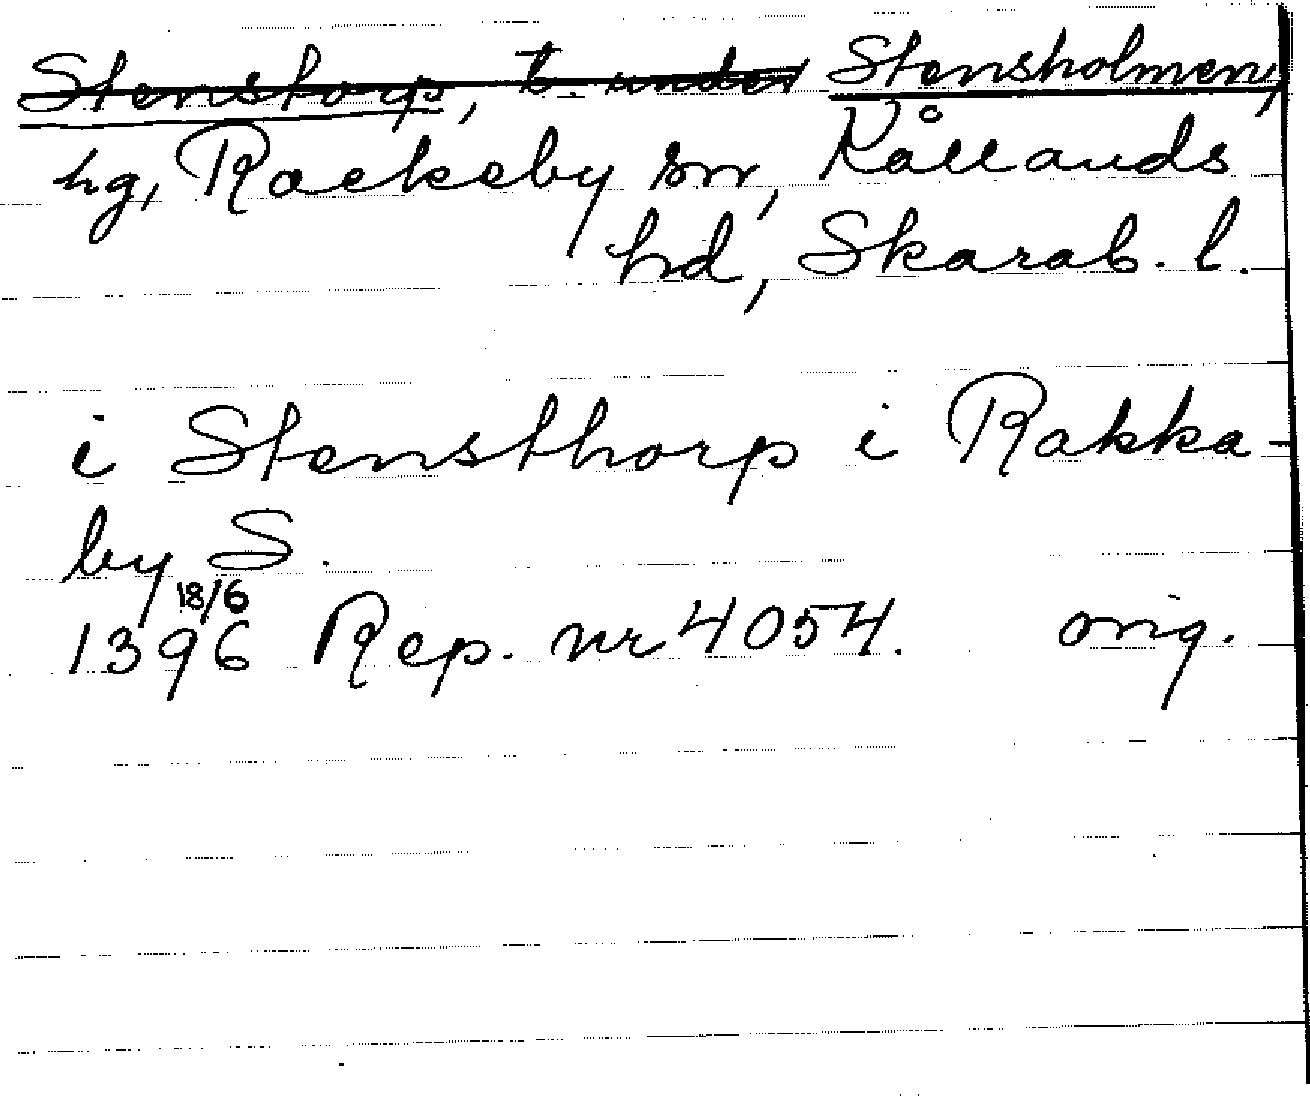 Stenstorp, t. under Stensholmen,
hg, Rackeby sn, Kållands
hd, Skarab. l.
i Stensthorp i Rakka-
by S.
18/6
1396 Rep. nr 4054. orig.